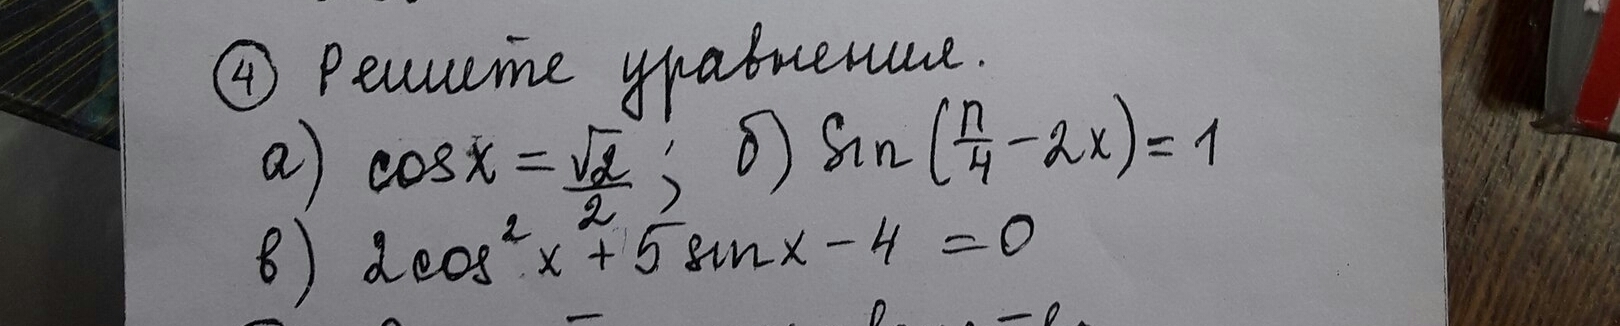 ④ Решите уравнения.
а) cos x = √2/2 ; б) Sin (π/4 - 2x) = 1
в) 2cos² x + 5 sin x - 4 = 0